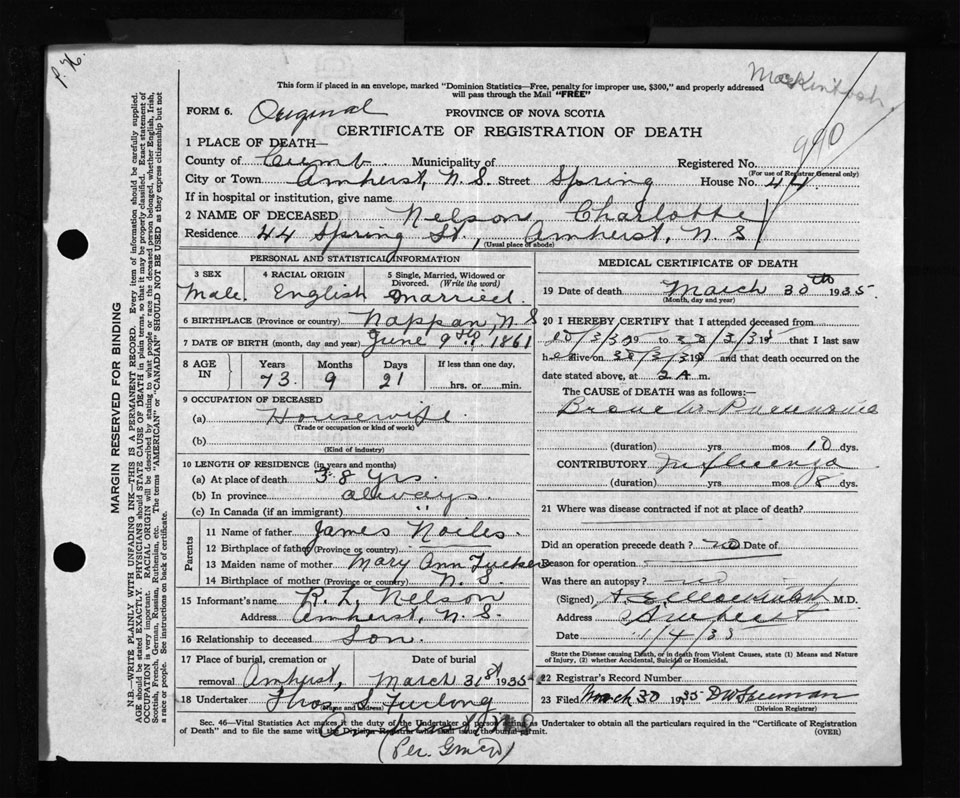 P. H.
Mackintosh
This form if placed in an envelope, marked "Dominion Statistics—Free, penalty for improper use, $300," and properly addressed
will pass through the Mail "FREE"
FORM 6. Original PROVINCE OF NOVA SCOTIA
990
CERTIFICATE OF REGISTRATION OF DEATH
1 PLACE OF DEATH—
County of Cumb. Municipality of Registered No.
(For use of Registrar General only)
City or Town Amherst, N.S. Street Spring House No. 44
If in hospital or institution, give name
2 NAME OF DECEASED Nelson Charlotte
Residence 44 Spring St., Amherst, N.S
(Usual place of abode)
PERSONAL AND STATISTICAL INFORMATION
3 SEX 4 RACIAL ORIGIN 5 Single, Married, Widowed or Divorced. (Write the word)
Male. English Married.
6 BIRTHPLACE (Province or country) Nappan, N.S
7 DATE OF BIRTH (month, day and year) June 9th, 1861
8 AGE IN Years Months Days If less than one day,
73 9 21 hrs. or min.
9 OCCUPATION OF DECEASED
(a) Housewife.
(Trade or occupation or kind of work)
(b)
(Kind of industry)
10 LENGTH OF RESIDENCE (in years and months)
(a) At place of death 38 yrs.
(b) In province always.
(c) In Canada (if an immigrant) "
Parents
11 Name of father James Noiles.
12 Birthplace of father (Province or country)
13 Maiden name of mother Mary Ann Tucker
14 Birthplace of mother (Province or country) N.S.
15 Informant's name R. L. Nelson
Address Amherst, N.S.
16 Relationship to deceased Son.
17 Place of burial, cremation or Date of burial
removal Amherst, March 31st 1935
18 Undertaker Thos S. Furlong
Name and address
Amherst N.S.
(Per. GMcD)
MEDICAL CERTIFICATE OF DEATH
19 Date of death March 30th 1935.
(Month, day and year)
20 I HEREBY CERTIFY that I attended deceased from
to that I last saw
h alive on and that death occurred on the
date stated above, at 2 A m.
The CAUSE OF DEATH was as follows:
Broncho Pneumonia
(duration) yrs. mos 10 dys.
CONTRIBUTORY Influenza
(duration) yrs. mos 8 dys.
21 Where was disease contracted if not at place of death?
Did an operation precede death? no Date of
Reason for operation
Was there an autopsy? no
(Signed) Mackintosh M.D.
Address Amherst
Date 1/4/35
State the Disease causing Death, or in death from Violent Causes, state (1) Means and Nature
of Injury, (2) whether Accidental, Suicidal or Homicidal.
22 Registrar's Record Number
23 Filed March 30 1935 D W Freeman
(Division Registrar)
Sec. 46—Vital Statistics Act makes it the duty of the Undertaker or person acting as Undertaker to obtain all the particulars required in the "Certificate of Registration
of Death" and to file the same with the Division Registrar who shall issue the burial permit.
(OVER)
MARGIN RESERVED FOR BINDING
N.B.—WRITE PLAINLY WITH UNFADING INK—THIS IS A PERMANENT RECORD. Every item of information should be carefully supplied.
AGE should be stated EXACTLY. PHYSICIANS should STATE CAUSE OF DEATH in plain terms, so that it may be properly classified. Exact statement of
OCCUPATION is very important. RACIAL ORIGIN will be described by stating to what people or race the deceased person belonged, whether English, Irish,
Scottish, French, German, Russian, Ruthenian, etc. The terms "AMERICAN" or "CANADIAN" SHOULD NOT BE USED as they express citizenship but not
a race or people. See instructions on back of certificate.